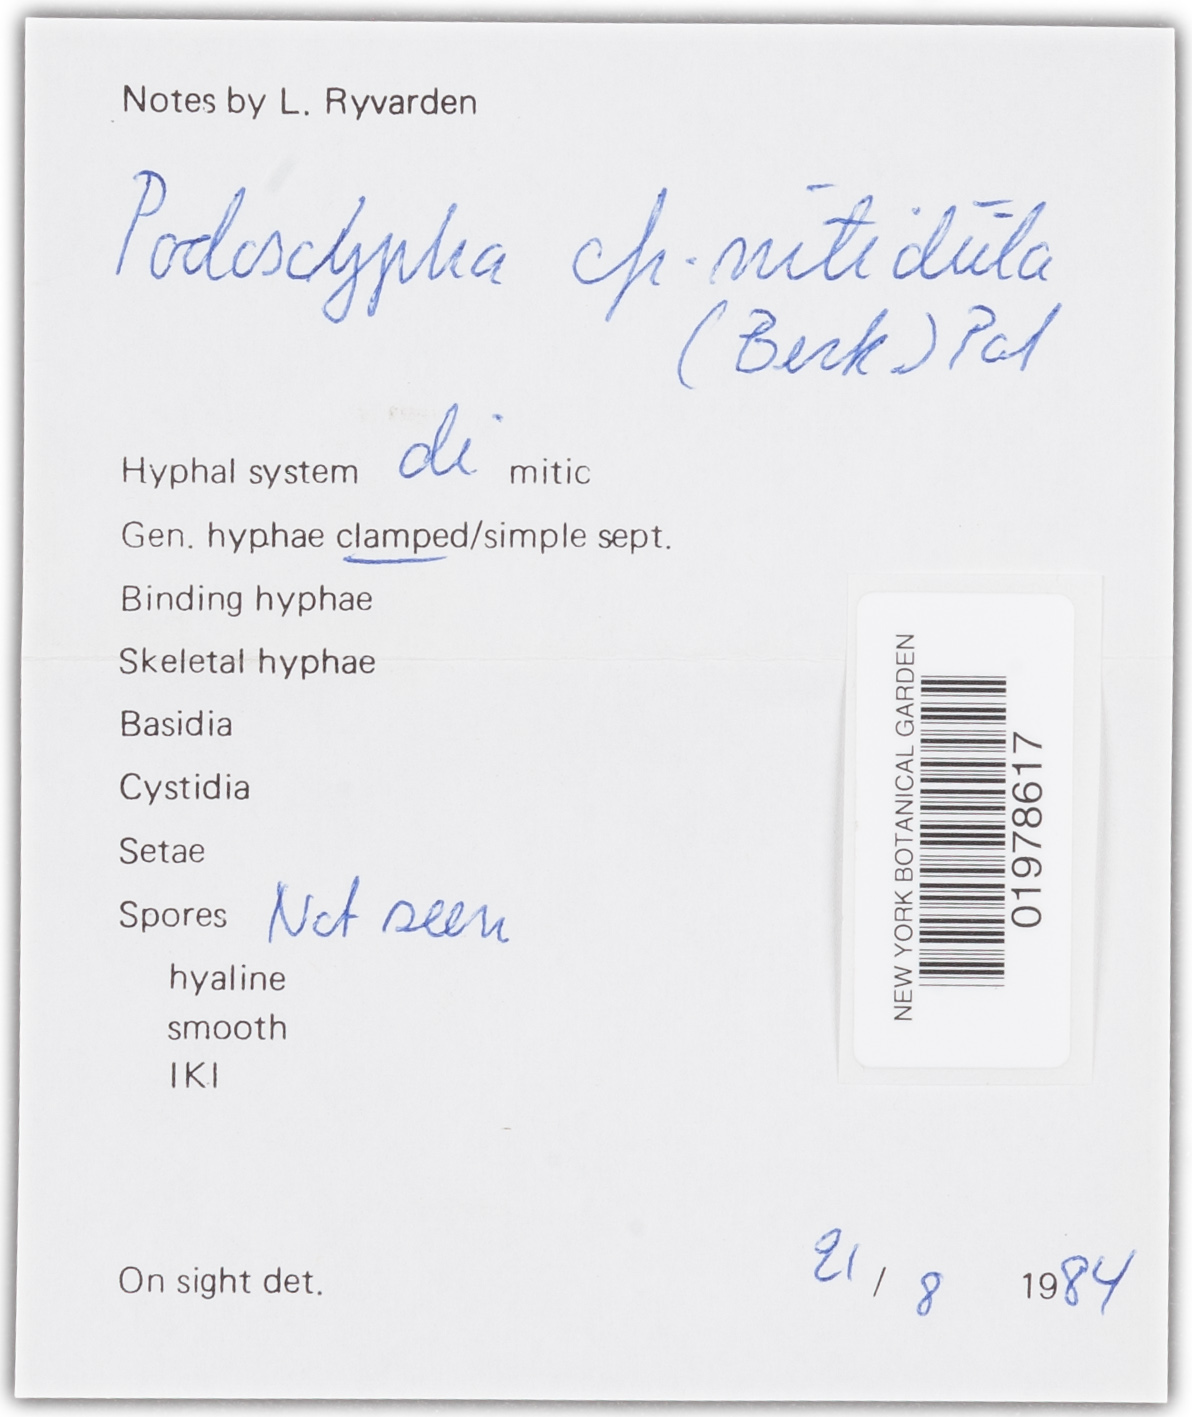 Notes by L. Ryvarden
Podoscypha cfr. nitidula
(Berk.) Pat
Hyphal system di mitic
Gen. hyphae clamped/simple sept.
Binding hyphae
Skeletal hyphae
Basidia
Cystidia
Setae
Spores Not seen
hyaline
smooth
IKI
On sight det. 21 / 8 1984
NEW YORK BOTANICAL GARDEN
01978617